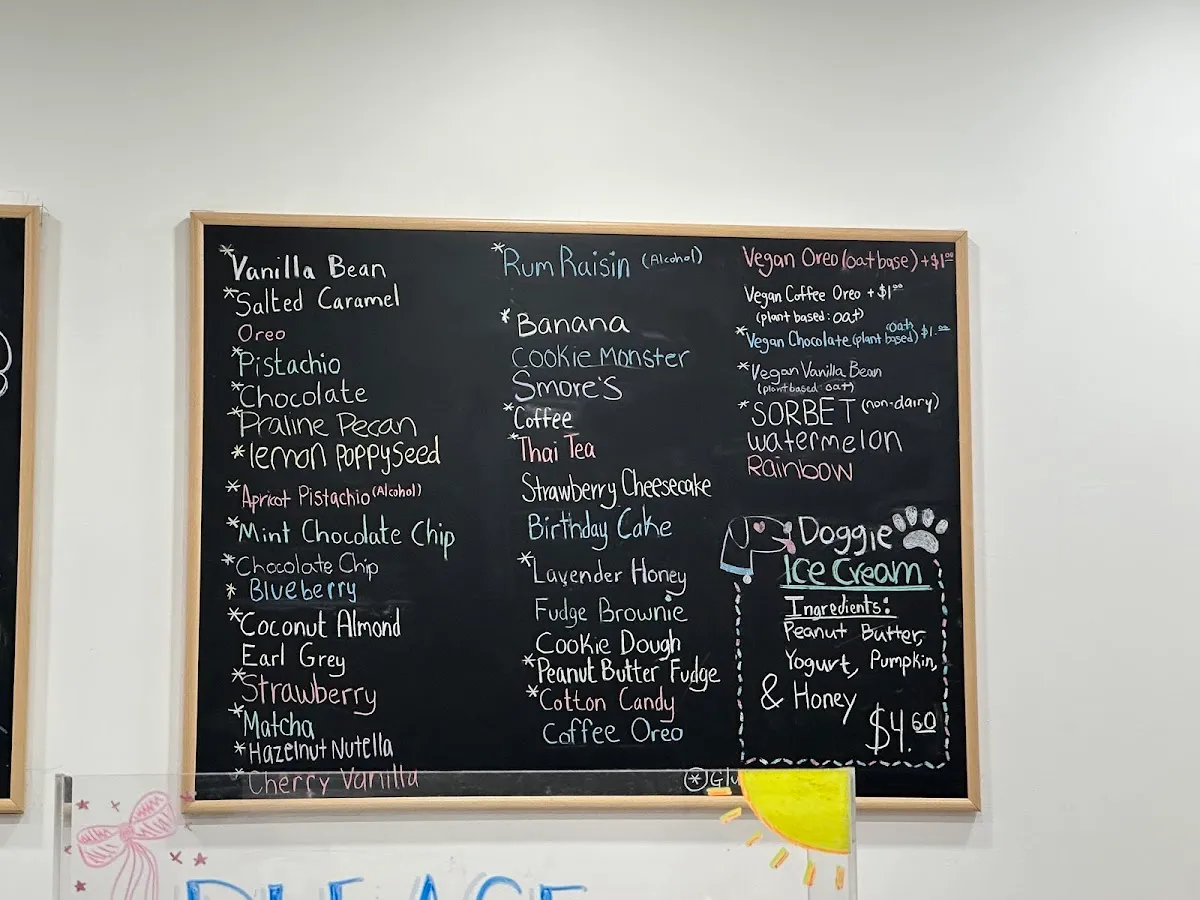 *Vanilla Bean
*Salted Caramel
Oreo
*Pistachio
*Chocolate
*Praline Pecan
*lemon PoppySeed
*Apricot Pistachio (Alcohol)
*Mint Chocolate Chip
*Chocolate Chip
* Blueberry
*Coconut Almond
Earl Grey
*Strawberry
*Matcha
*Hazelnut Nutella
*Cherry Vanilla
*Rum Raisin (Alcohol)
*Banana
COOKIE MONSTER
Smore's
*Coffee
*Thai Tea
Strawberry Cheesecake
Birthday Cake
*Lavender Honey
Fudge Brownie
Cookie Dough
*Peanut Butter Fudge
*Cotton Candy
Coffee Oreo
Vegan Oreo (oat base) +$1.00
Vegan Coffee Oreo + $1.00
(plant based: oat)
*Vegan Chocolate (plant based) oat) $1.00
*Vegan Vanilla Bean
(plant based: oat)
*SORBET (non-dairy)
watermelon
RainBOW
Doggie
Ice Cream
Ingredients:
Peanut Butter,
Yogurt, Pumpkin,
& Honey
$4.60
(*) Glu
PLEASE